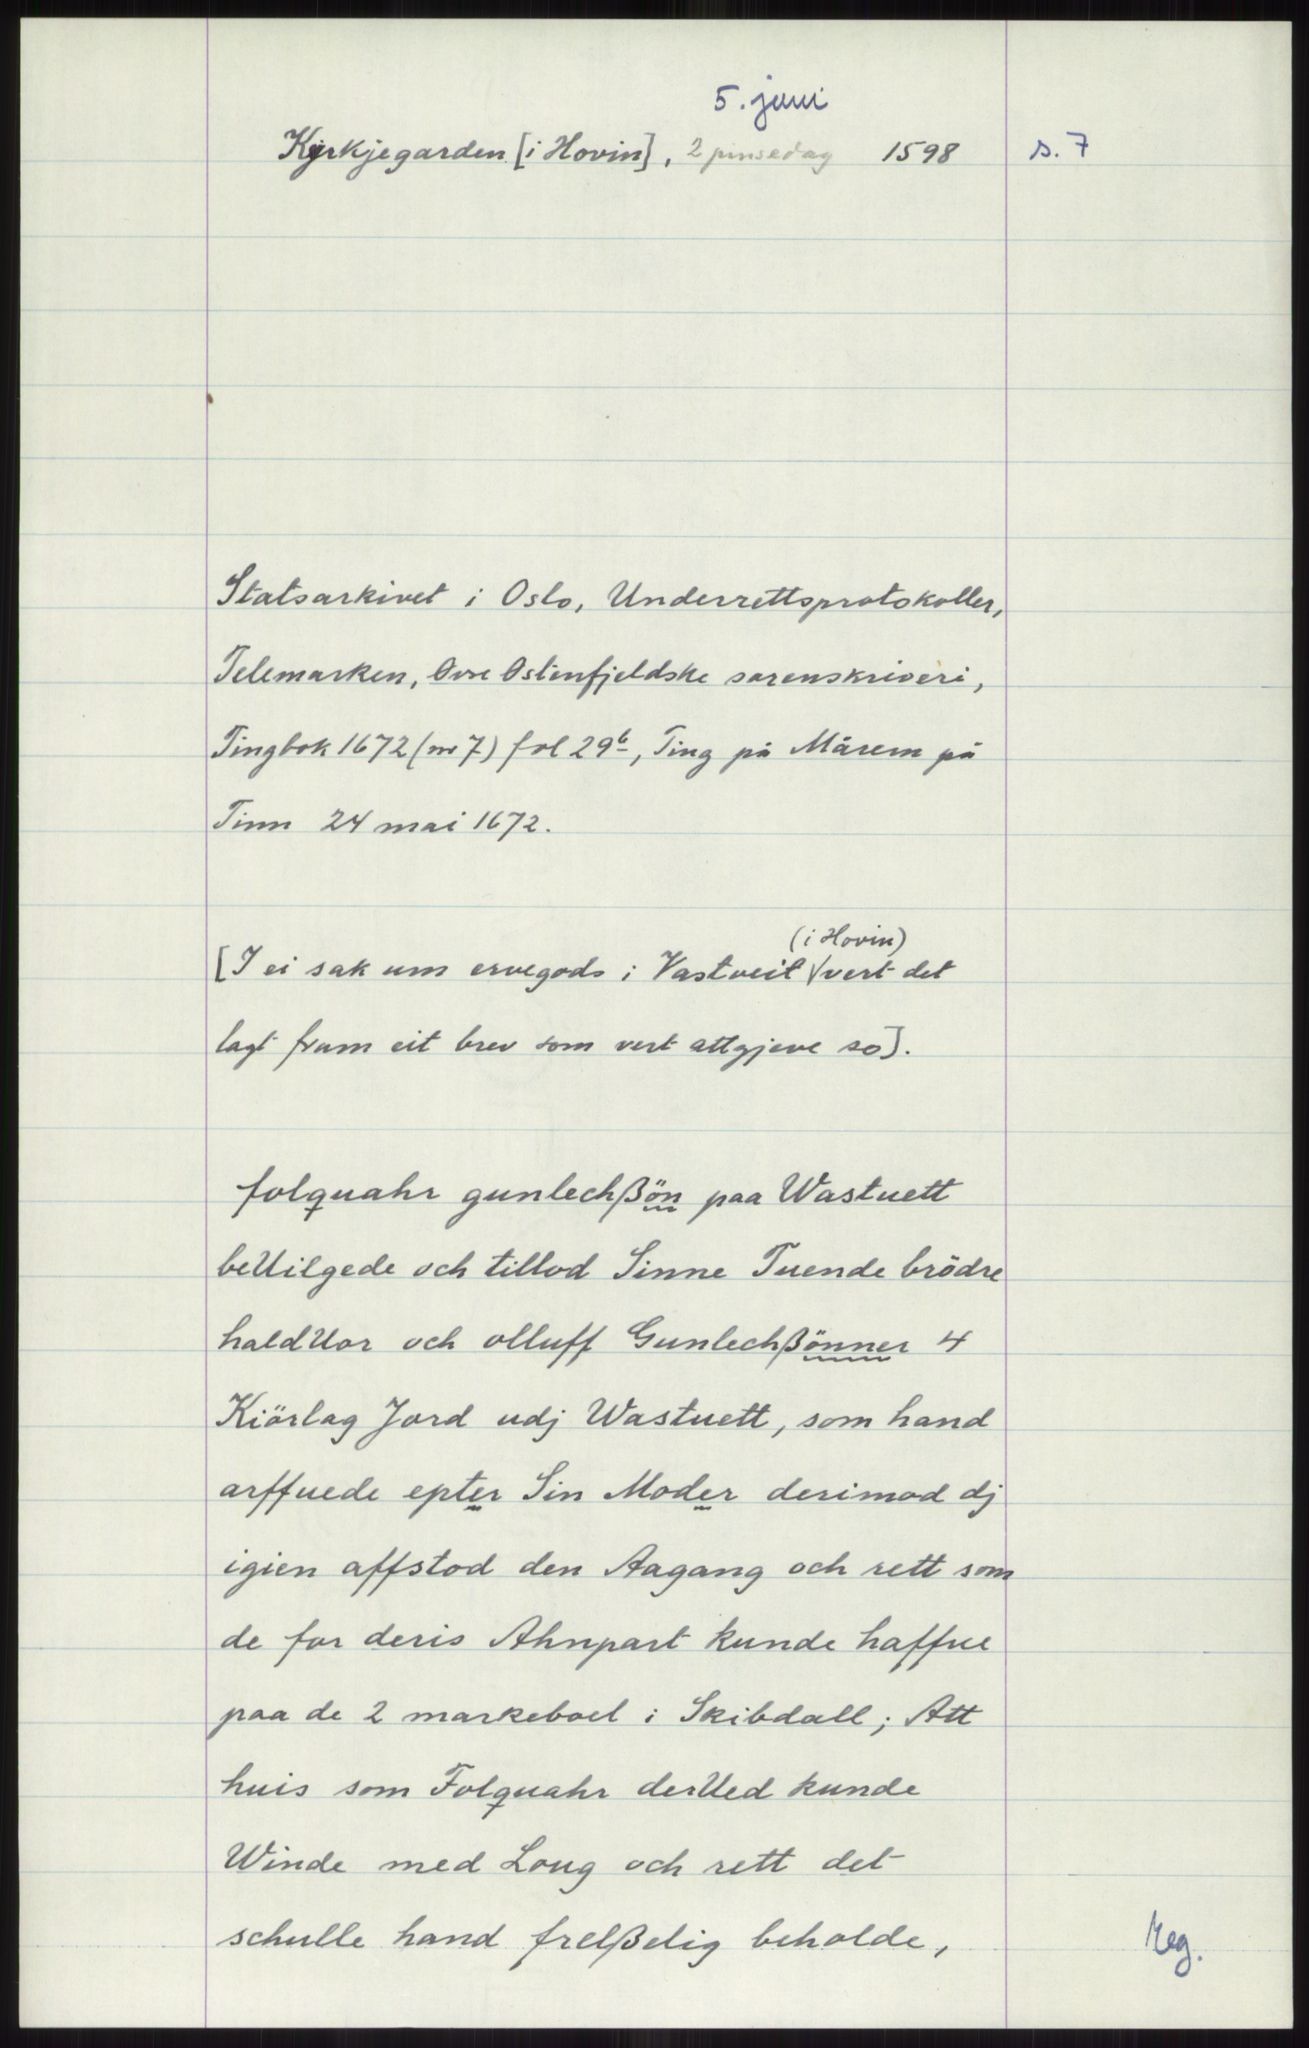 5. juni
Kyrkjegarden [i Hovin], 2 pinsedag 1598 s. 7
Statsarkivet i Oslo, Underrettsprotokoller,
Telemarken, Øvre Østenfjeldske sorenskriveri,
Tingbok 1672 (nr 7) fol 29b, Ting på Mårem på
Tinn 24 mai 1672.
(i Hovin)
[I ei sak um ervegods i Vastveit √ vert det
lagt fram eit brev som vert attgjeve so].
folquahr gunlechßön paa Wastuett
beUilgede och tillod Sinne Tuende brödre
haldUor och olluff Gunlechßönner 4
Kiörlag Jord udj Wastuett, som hand
arffuede epter Sin Moder derimod dj
igien affstod den Aagang och rett som
de for deris Ahnpart kunde haffue
paa de 2 markeboel i Skibdall; Att
huis som Folquahr derUed kunde
Winde med Loug och rett det
schulle hand frelßelig beholde,
Reg.